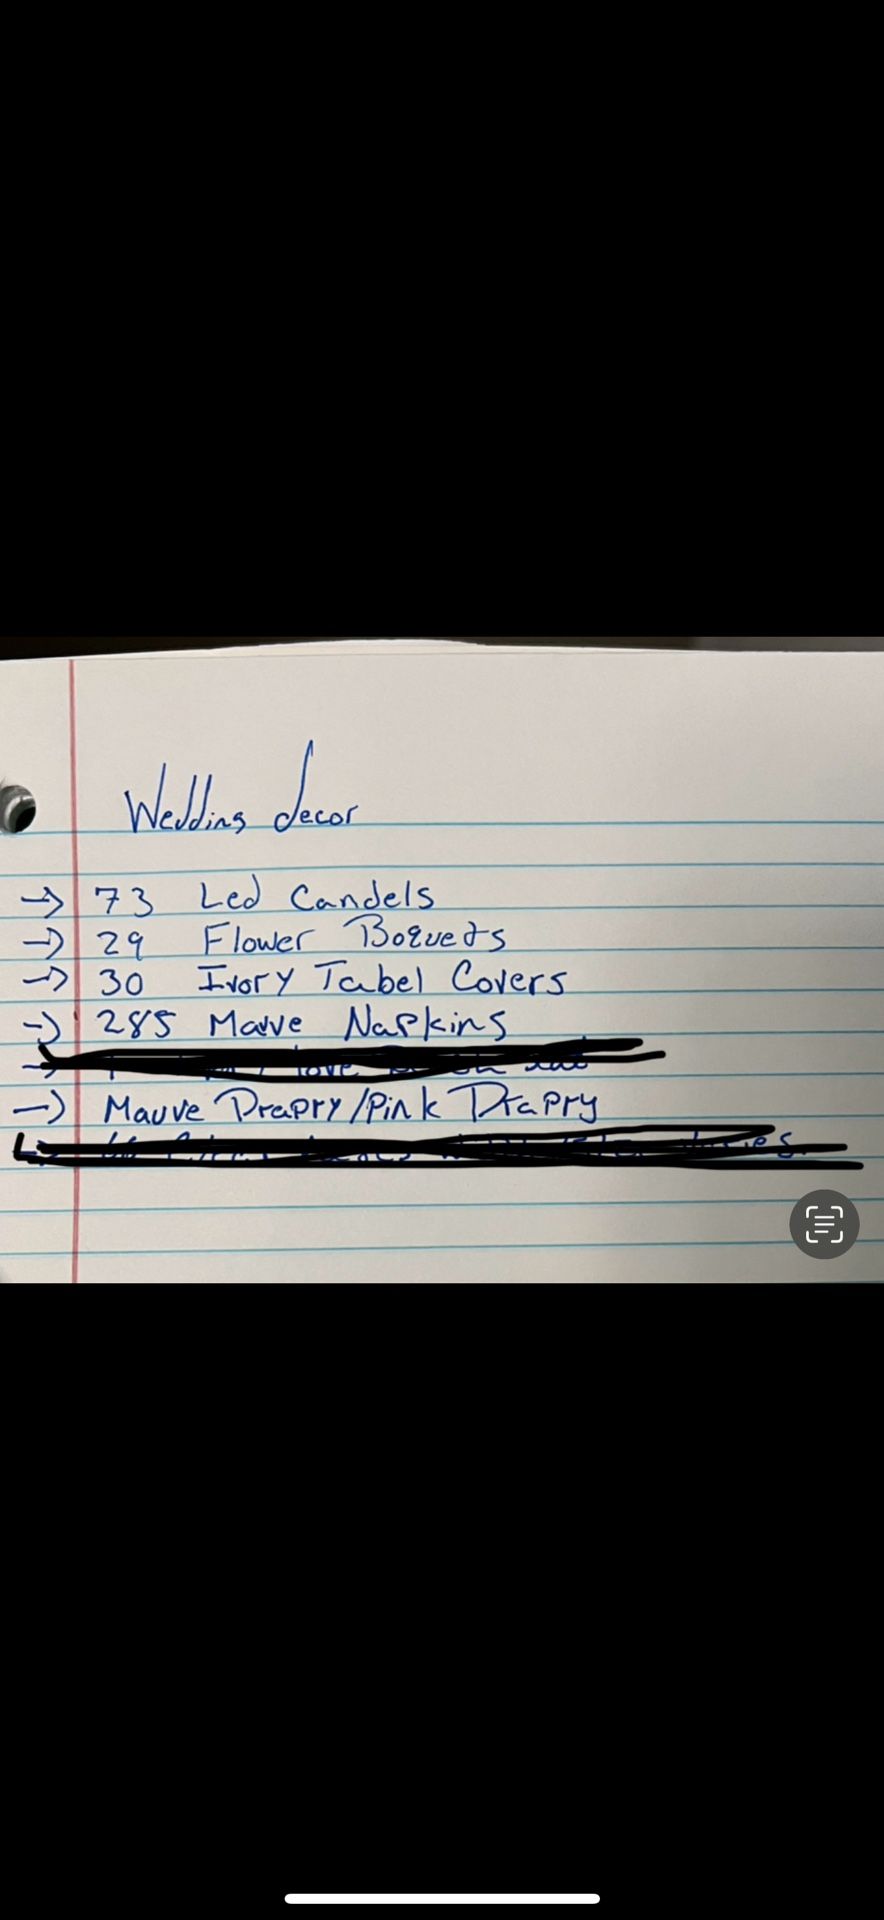 Wedding decor
→ 73 Led Candels
→ 29 Flower Boquets
→ 30 Ivory Tabel Covers
→ 285 Mauve Napkins
→ love
→ Mauve Drapry/Pink Drapry